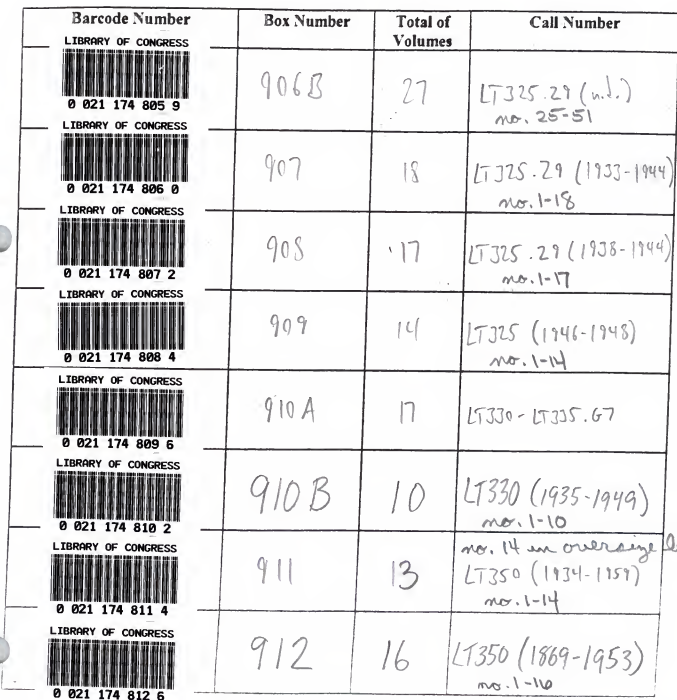 Barcode Number Box Number Total of Volumes Call Number
LIBRARY OF CONGRESS
0 021 174 805 9
906B
27
LT325.29 (n.d.)
no. 25-51
LIBRARY OF CONGRESS
0 021 174 806 0
907
18
LT325.29 (1933-1944)
no. 1-18
LIBRARY OF CONGRESS
0 021 174 807 2
908
17
LT325.29 (1938-1944)
no. 1-17
LIBRARY OF CONGRESS
0 021 174 808 4
909
14
LT325 (1946-1948)
no. 1-14
LIBRARY OF CONGRESS
0 021 174 809 6
910A
17
LT330-LT335.G7
LIBRARY OF CONGRESS
0 021 174 810 2
910B
10
LT330 (1935-1949)
no. 1-10
LIBRARY OF CONGRESS
0 021 174 811 4
911
13
no. 14 in oversize
LT350 (1934-1959)
no. 1-14
LIBRARY OF CONGRESS
0 021 174 812 6
912
16
LT350 (1869-1953)
no. 1-16